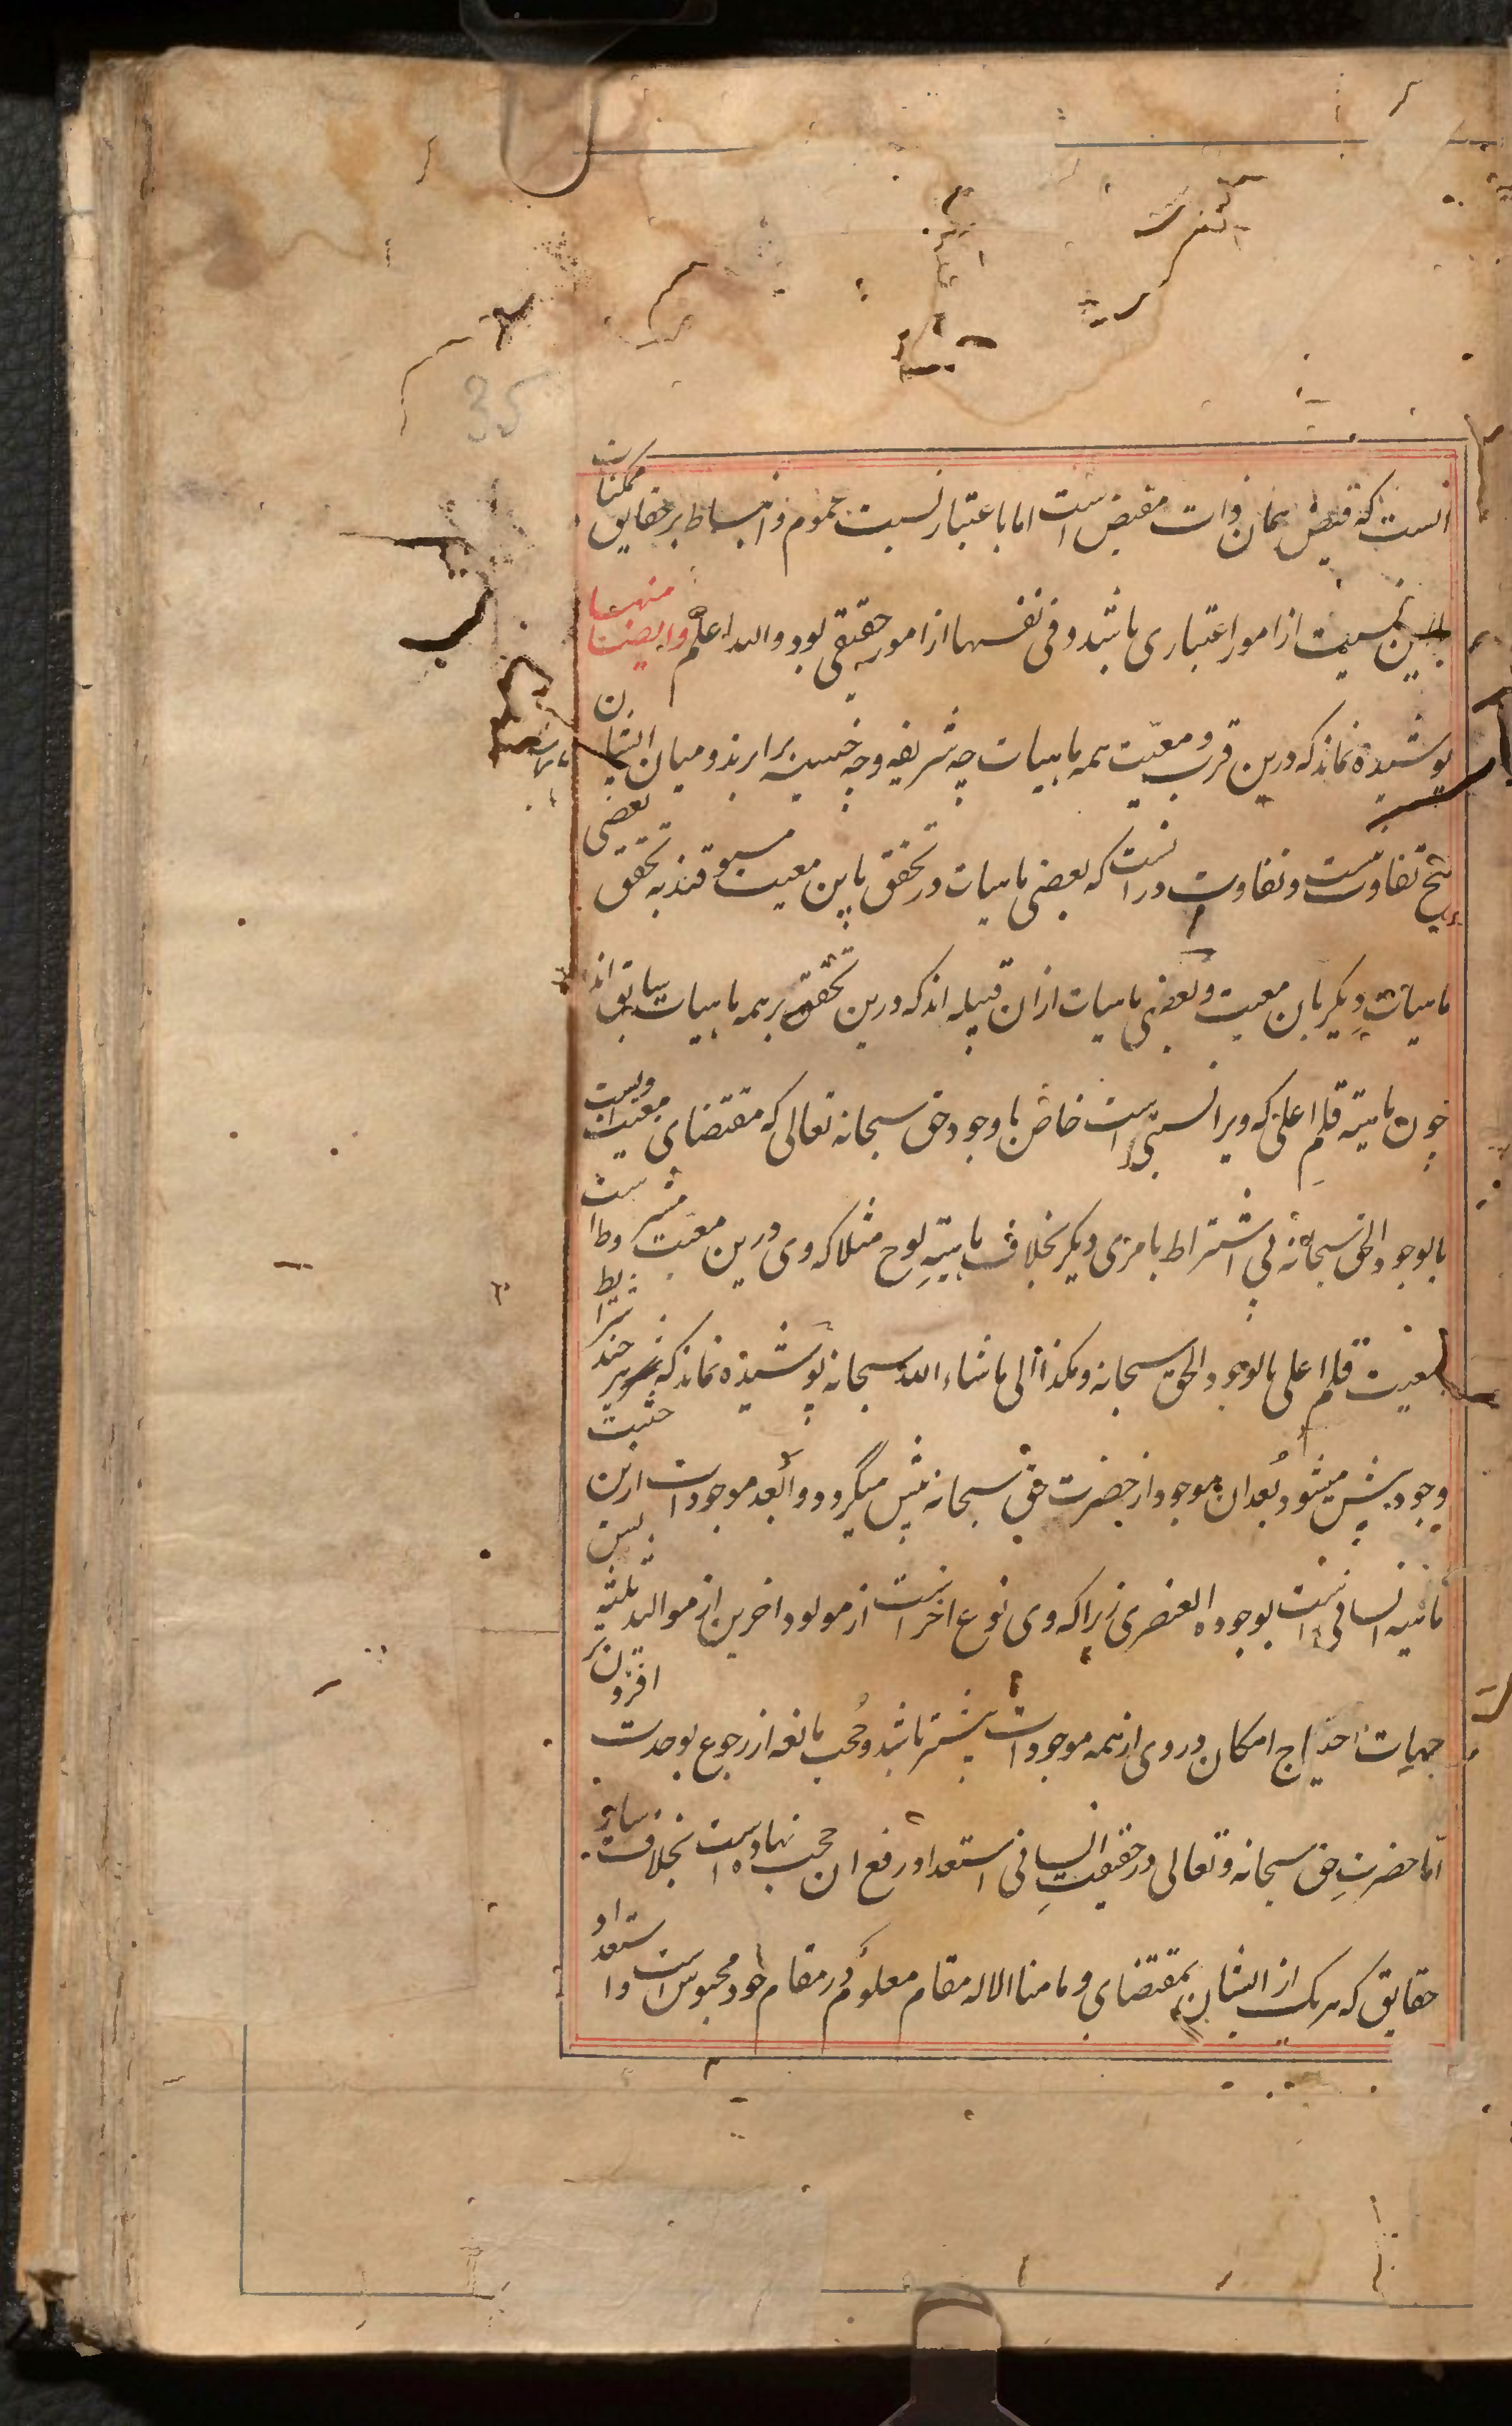 35
آنست که فیض همان ذات مفیض است اما باعتبار نسبت عموم و انبساط بر حقایق ممکنات
پس این نسبت از امور اعتباری باشد و فی نفسها از امور حقیقی بود والله اعلم وایضا منها
پوشیده نماند که درین قرب و معیت همه ماهیات چه شریفه و چه خسیسه برابرند و میان ایشان
هیچ تفاوت نیست و تفاوت در آنست که بعضی ماهیات در تحقق باین معیت مسبوقند به تحقق بعضی
ماهیات دیگر بان معیت و بعضی ماهیات ازان قبیله اند که درین تحقق بر همه ماهیات سابق اند
چون ماهیه قلم اعلی که ویرا نسبتی است خاص با وجود حق سبحانه تعالی که مقتضای معیت ویست
بالوجود الحق سبحانه بی اشتراط بامری دیگر بخلاف ماهیه لوح مثلا که وی درین معیت مشروط است
بمعیت قلم اعلی بالوجود الحق سبحانه وهکذا الی ماشاء الله سبحانه پوشیده نماند که هر چند شرایط
وجود بیش میشود بعد ان موجود از حضرت حق سبحانه بیش میگردد و ابعد موجودات ازین حیثیت
ماهیه انسانی است بوجوده العنصری زیرا که وی نوع اخر است از مولود اخرین از موالید ثلثه پس
جهات احتیاج امکان در وی از همه موجودات بیشتر باشد و حجب مانعه از رجوع بوحدت افزون تر
اما حضرت حق سبحانه و تعالی در حقیقت انسانی استعداد رفع ان حجب نهاده است بخلاف سایر
حقایق که هر یک از ایشان بمقتضای وما منا الا له مقام معلوم در مقام خود محبوس است و استعداد